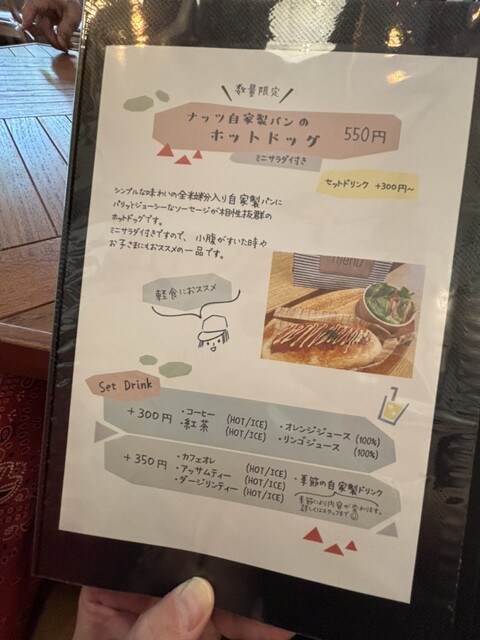 数量限定
ナッツ自家製パンの
ホットドッグ 550円
ミニサラダ付き
セットドリンク +300円~
シンプルな味わいの全粒粉入り自家製パンに
パリッとジューシーなソーセージが相性抜群の
ホットドッグです。
ミニサラダ付きですので、小腹がすいた時や
お子さまにもおススメの一品です。
軽食におススメ
menu
Set Drink
+300円
・コーヒー (HOT/ICE) ・オレンジジュース (100%)
・紅茶 (HOT/ICE) ・リンゴジュース (100%)
+350円
・カフェオレ (HOT/ICE) ・季節の自家製ドリンク
・アッサムティー (HOT/ICE) 季節により内容が変わります。
・ダージリンティー (HOT/ICE) 詳しくはスタッフまで